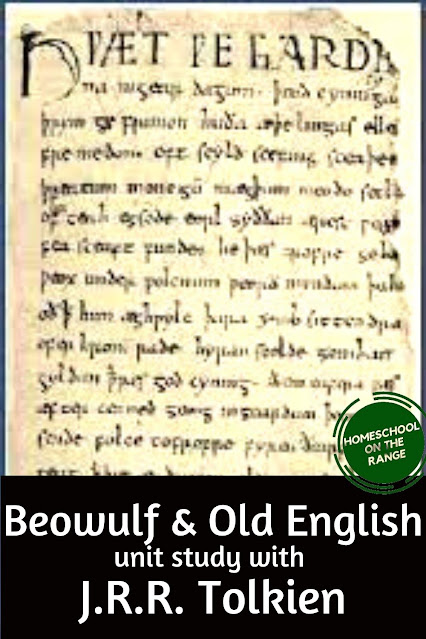 HǷÆT ǷE GARDE
na ingear dagum. þeod cyninga
þrym ge frunon huða æþelingas elle
fremedon. oft scyld scefing sceaþe
þreatum monegū mægþum meodo setl
of teah egsode eorl syððan ærest
fea sceaft funden he þæs frofre geba
ƿeox under ƿolcnum ƿeorð myndum þah
him æghƿylc þara ymb sittendra
ofer hron rade hyran scolde gomban
gyldan þæt god cyning.
æfter cenned geong ingeardum
sende folce tofrofre fyren
HOMESCHOOL
ON THE
RANGE
Beowulf & Old English
unit study with
J.R.R. Tolkien